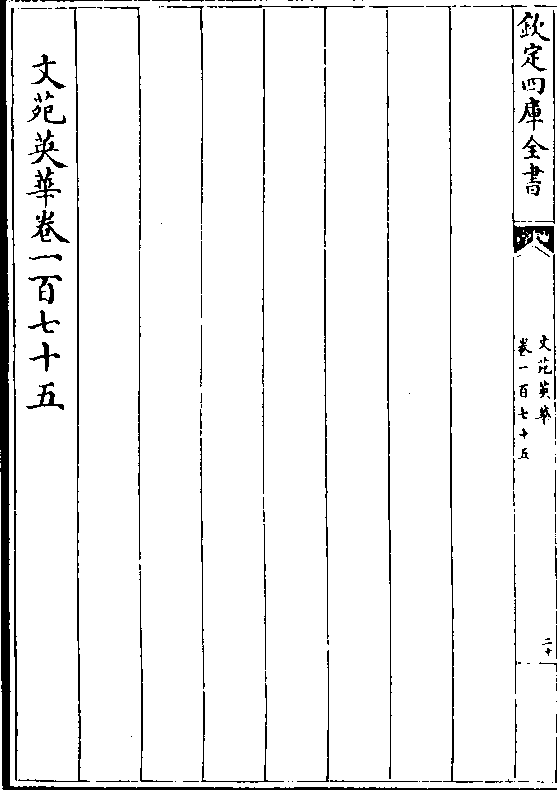 欽定四庫全書
文苑英華
卷一百七十五
二十
文苑英華卷一百七十五